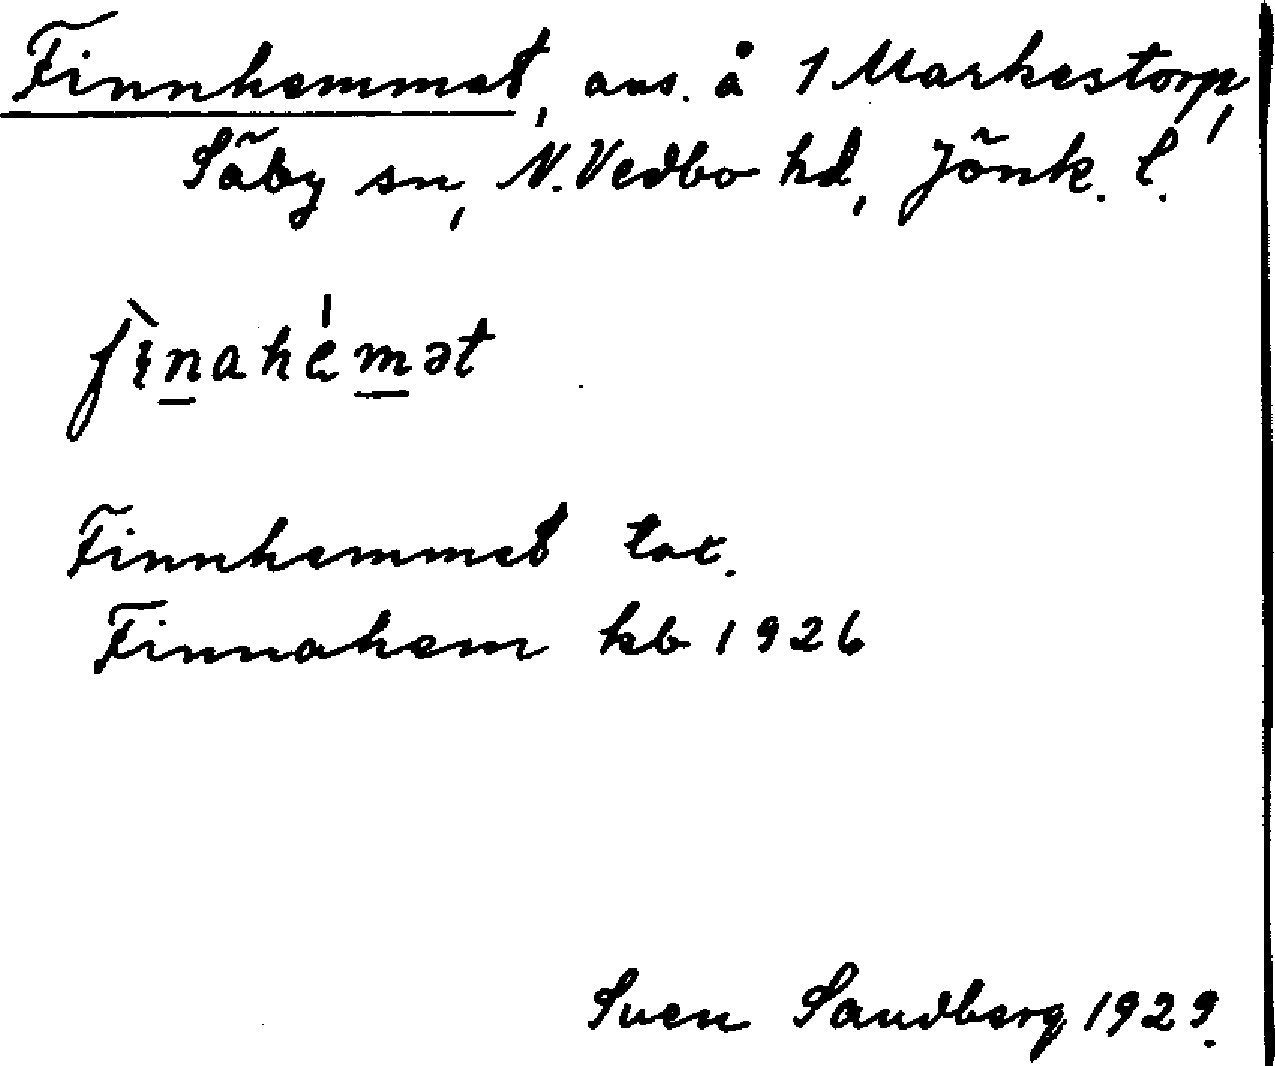 Finnhemmet, avs. å 1 Markestorp,
Säby sn, N. Vedbo hd, Jönk. l.
fìnahémət
Finnhemmet lat.
Finnahem kb 1926
Sven Sandberg 1929.